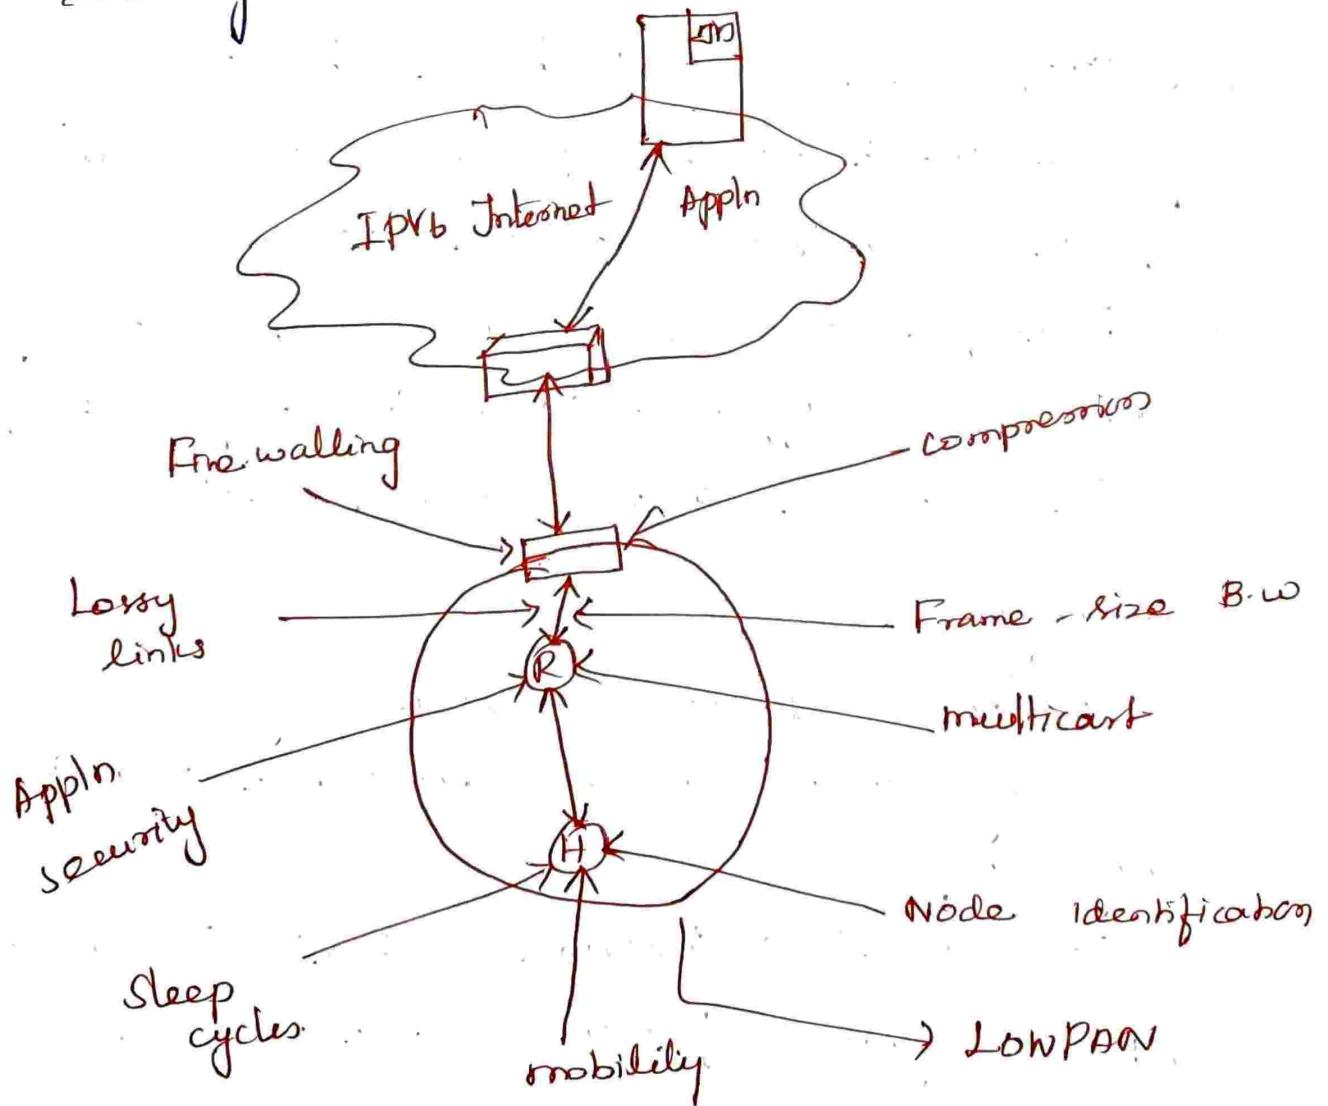 IPV6 Internet
Appln
Fire walling
compression
Lossy
links
Frame - size B.W
R
multicast
Appln
security
H
Node Identification
Sleep
cycles
mobility
LOWPAN